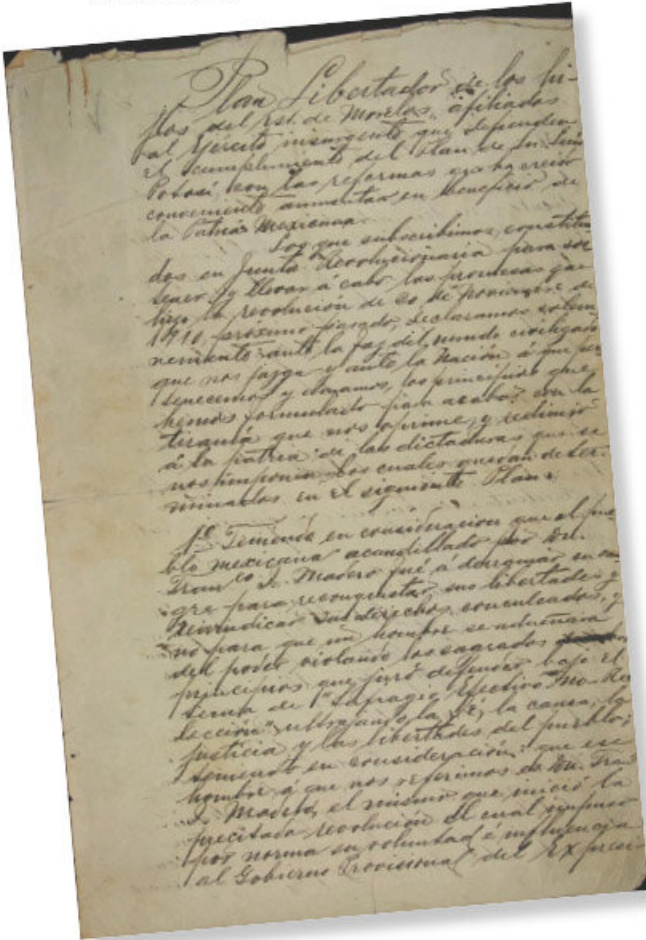 Plan Libertador de los hi-
jos del Est. de Morelos, afiliados
al Ejército insurgente que defienden
el cumplimiento del Plan de Sn. Luis
Potosí con las reformas que ha creido
conveniente aumentar en beneficio de
la Patria Mexicana.
Los que subscribimos, constitui
dos en Junta Revolucionaria para sos
tener y llevar á cabo las promesas que
hizo la revolución de 20 de Noviembre de
1910, próximo pasado, declaramos solem
nemente ante la faz del mundo civilizado
que nos juzga y ante la Nación á que per
tenecemos y amamos, los principios que
hemos formulado para acabar con la
tiranía que nos oprime y redimir
á la patria de las dictaduras que se
nos imponen los cuales quedan deter
minados en el siguiente Plan:
1º Teniendo en consideración que el pue
blo mexicano acaudillado por Dn.
Franco I. Madero fué á derramar su san
gre para reconquistar sus libertades y
reivindicar sus derechos conculcados, y
no para que un hombre se adueñara
del poder violando los sagrados
principios que juró defender bajo el
lema de "Sufragio Efectivo" "No Re
lección" ultrajando la fé, la causa, la
justicia y las libertades del pueblo;
teniendo en consideración: que ese
hombre á que nos referimos es Dn. Fran
I. Madero, el mismo que inició la
precitada revolución el cual impuso
por norma su voluntad é influencia
al Gobierno Provisional del Ex presi-